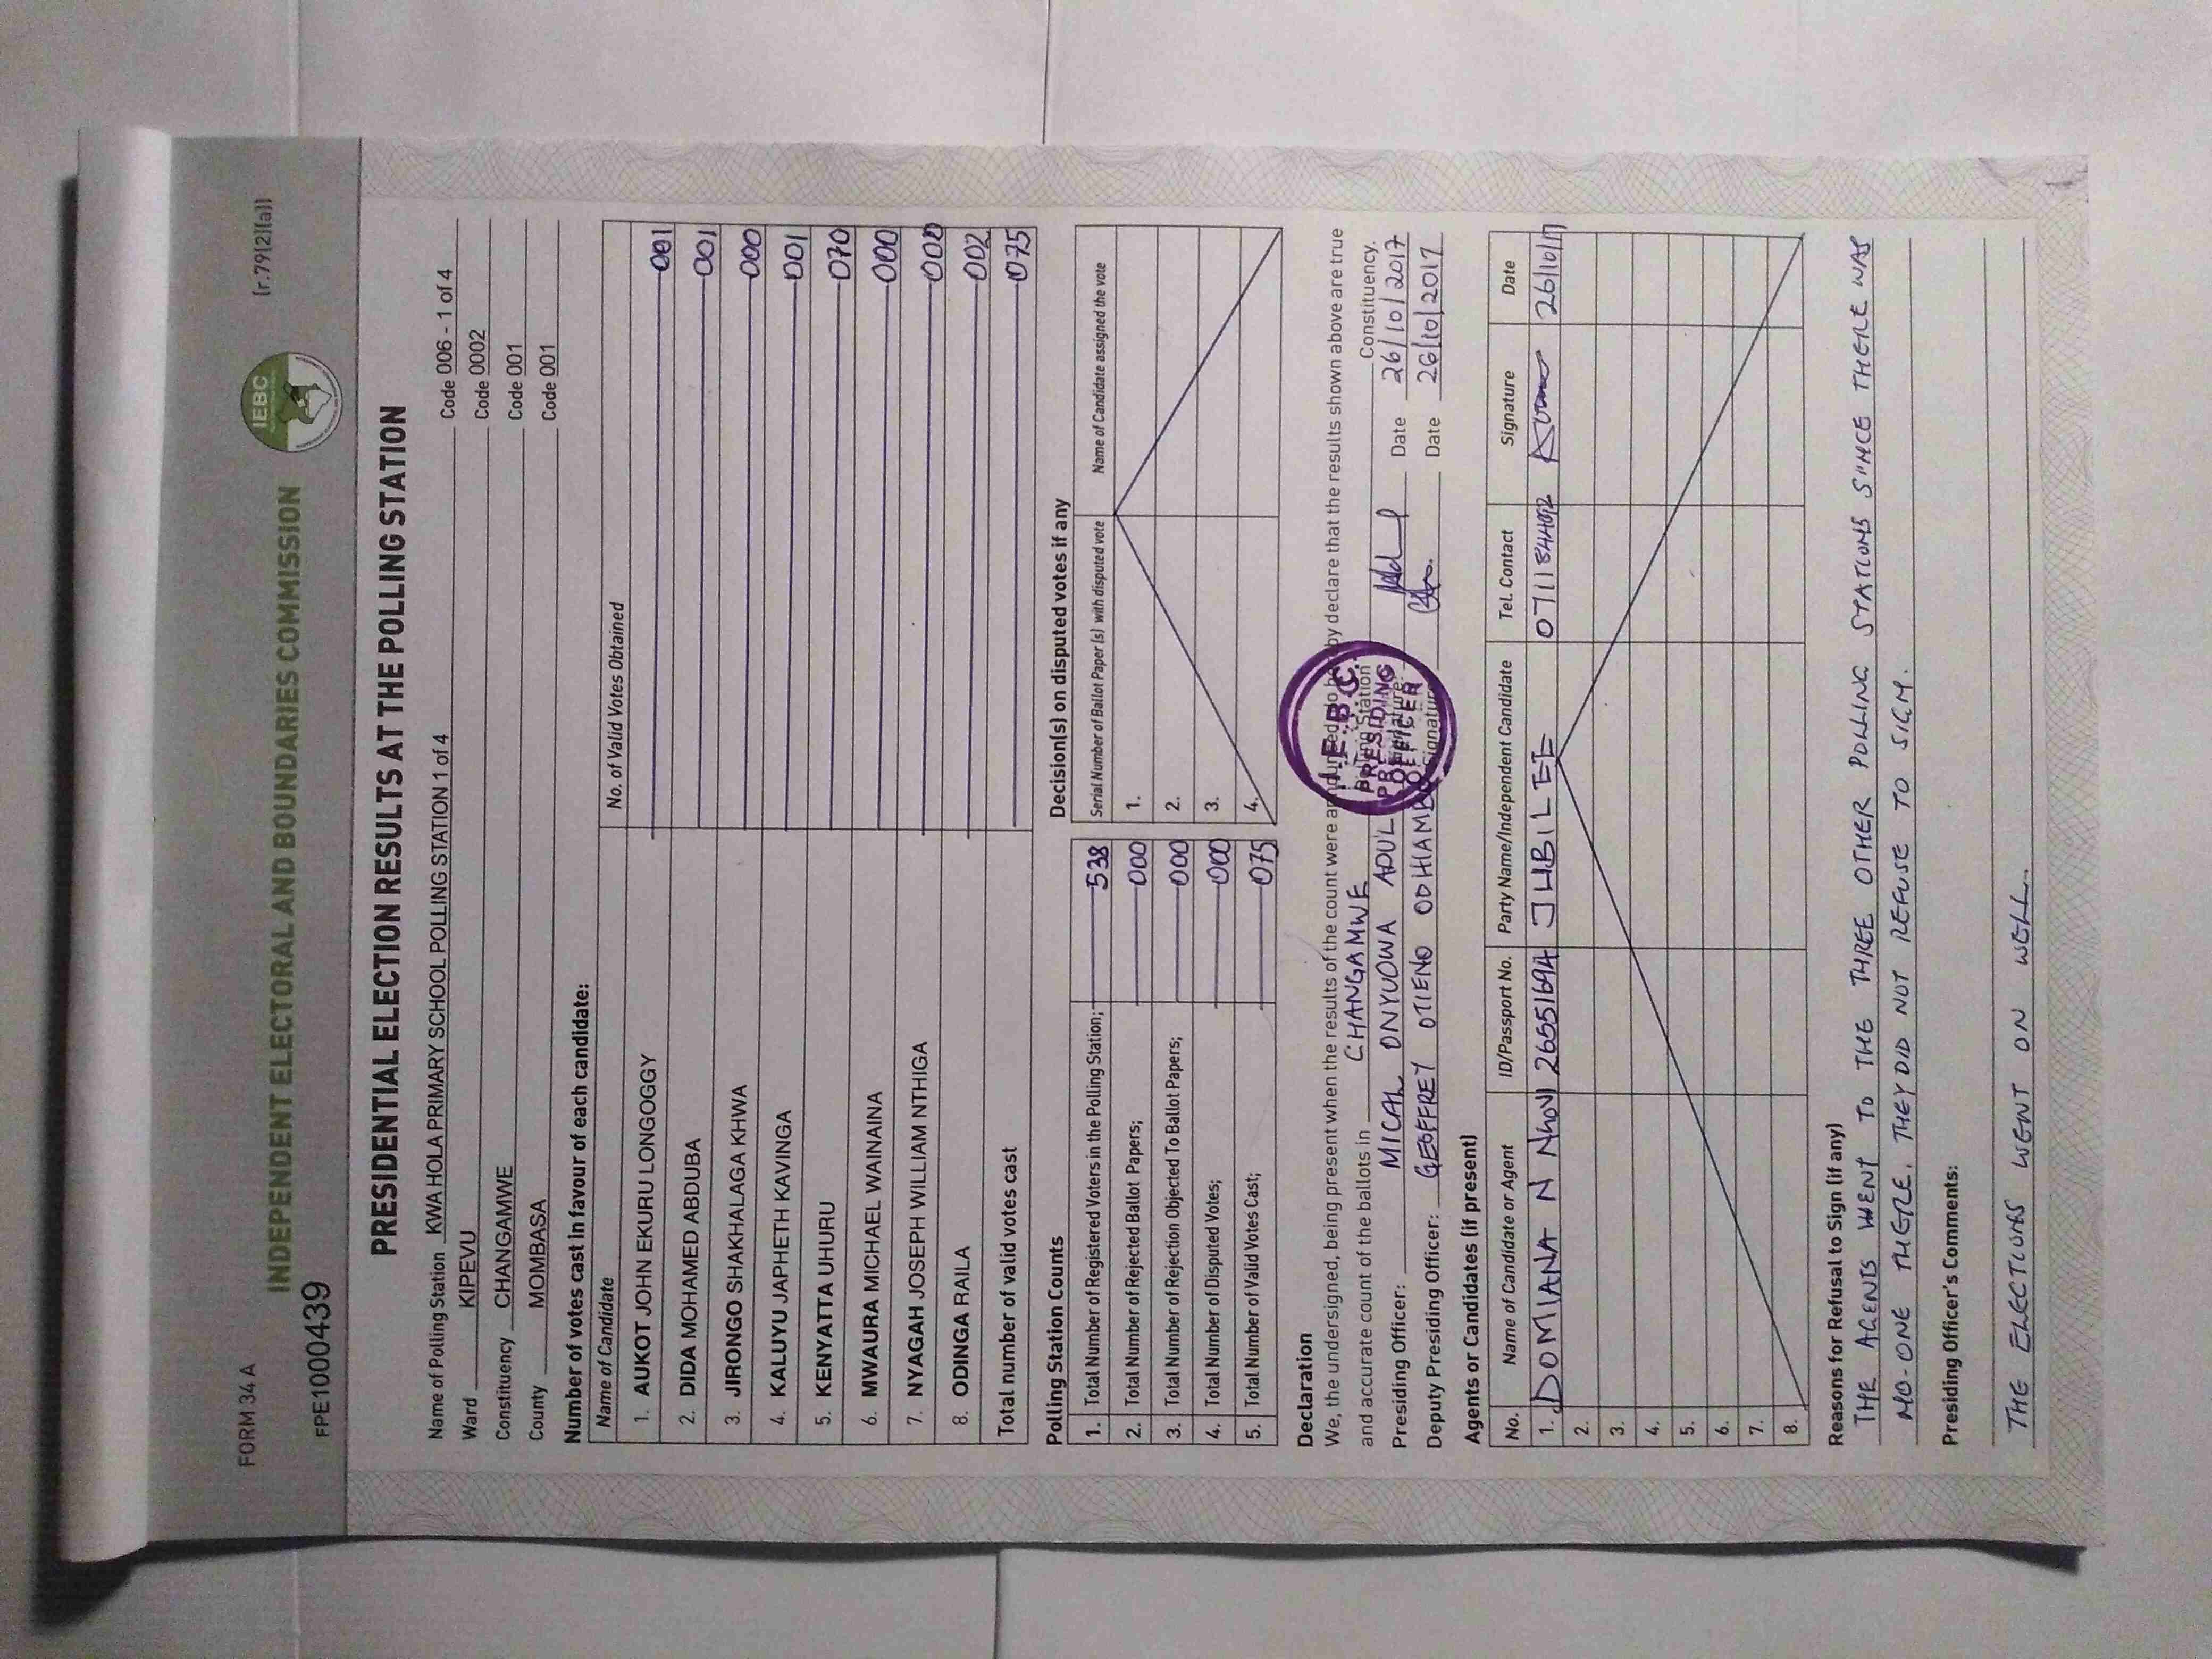 FORM 34 A
(r.79(2)(a))
IEBC
INDEPENDENT ELECTORAL AND BOUNDARIES COMMISSION
FPE1000439
PRESIDENTIAL ELECTION RESULTS AT THE POLLING STATION
Name of Polling Station KWA HOLA PRIMARY SCHOOL POLLING STATION 1 of 4 Code 006 - 1 of 4
Ward KIPEVU Code 0002
Constituency CHANGAMWE Code 001
County MOMBASA Code 001
Number of votes cast in favour of each candidate:
Name of Candidate No. of Valid Votes Obtained
1. AUKOT JOHN EKURU LONGOGGY 001
2. DIDA MOHAMED ABDUBA 001
3. JIRONGO SHAKHALAGA KHWA 000
4. KALUYU JAPHETH KAVINGA 001
5. KENYATTA UHURU 070
6. MWAURA MICHAEL WAINAINA 000
7. NYAGAH JOSEPH WILLIAM NTHIGA 000
8. ODINGA RAILA 002
Total number of valid votes cast 075
Polling Station Counts
1. Total Number of Registered Voters in the Polling Station; 538
2. Total Number of Rejected Ballot Papers; 000
3. Total Number of Rejection Objected To Ballot Papers; 000
4. Total Number of Disputed Votes; 000
5. Total Number of Valid Votes Cast; 075
Decision(s) on disputed votes if any
Serial Number of Ballot Paper (s) with disputed vote Name of Candidate assigned the vote
1.
2.
3.
4.
Declaration
We, the undersigned, being present when the results of the count were declare that the results shown above are true
and accurate count of the ballots in CHANGAMWE Polling Station Constituency,
Presiding Officer: MICAH ONYUOWA ADUL Signature: Date 26/10/2017
Deputy Presiding Officer: GEOFFREY OTIENO ODHIAMBO Signature Date 26/10/2017
I.E.B.C.
PRESIDING
OFFICER
Agents or Candidates (if present)
No. Name of Candidate or Agent ID/Passport No. Party Name/Independent Candidate Tel. Contact Signature Date
1. DOMIANA N 26551694 JUBILEE 26/10/17
2.
3.
4.
5.
6.
7.
8.
Reasons for Refusal to Sign (if any)
THE AGENTS WENT TO THE THREE OTHER POLLING STATIONS SINCE THERE WAS
NO-ONE THERE. THEY DID NOT REFUSE TO SIGN.
Presiding Officer's Comments:
THE ELECTIONS WENT ON WELL.